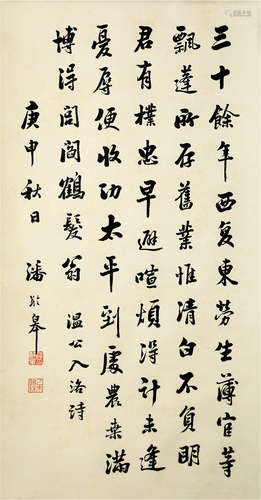 三十餘年西复東勞生薄宦等
飄蓬所存舊業惟清白不負明
君有樸忠早避喧煩淂計未逢
憂辱便收功太平到處農桑滿
博淂閭閻鶴髮翁 温公入洛詩
庚申秋日 潘齡皋